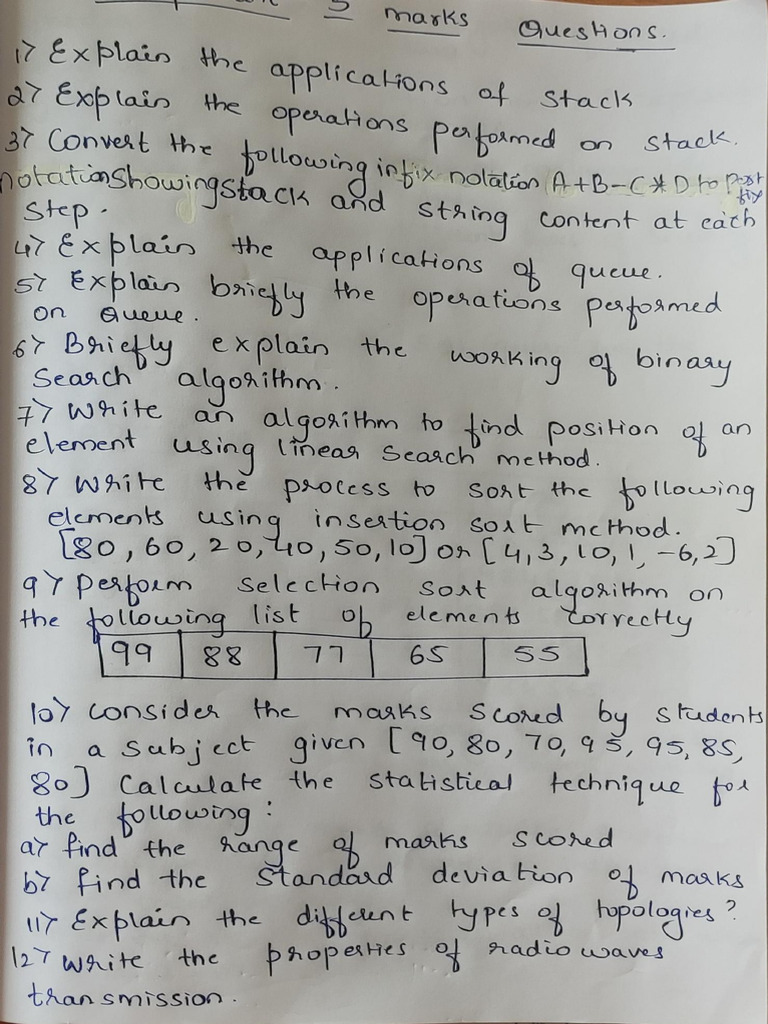 5 marks Questions.
1> Explain the applications of stack
2> Explain the operations performed on stack.
3> Convert the following infix notation A+B-C*D to Post
fix
notation showing stack and string content at each
step.
4> Explain the applications of queue.
5> Explain briefly the operations performed
on Queue.
6> Briefly explain the working of binary
Search algorithm.
7> Write an algorithm to find position of an
element using linear Search method.
8> Write the process to sort the following
elements using insertion sort method.
[80, 60, 20, 40, 50, 10] or [4, 3, 10, 1, -6, 2]
9> Perform selection sort algorithm on
the following list of elements correctly
99 88 77 65 55
10> Consider the marks scored by students
in a subject given [90, 80, 70, 95, 95, 85,
80] Calculate the statistical technique for
the following:
a> find the range of marks scored
b> find the Standard deviation of marks
11> Explain the different types of topologies?
12> Write the properties of radio waves
transmission.